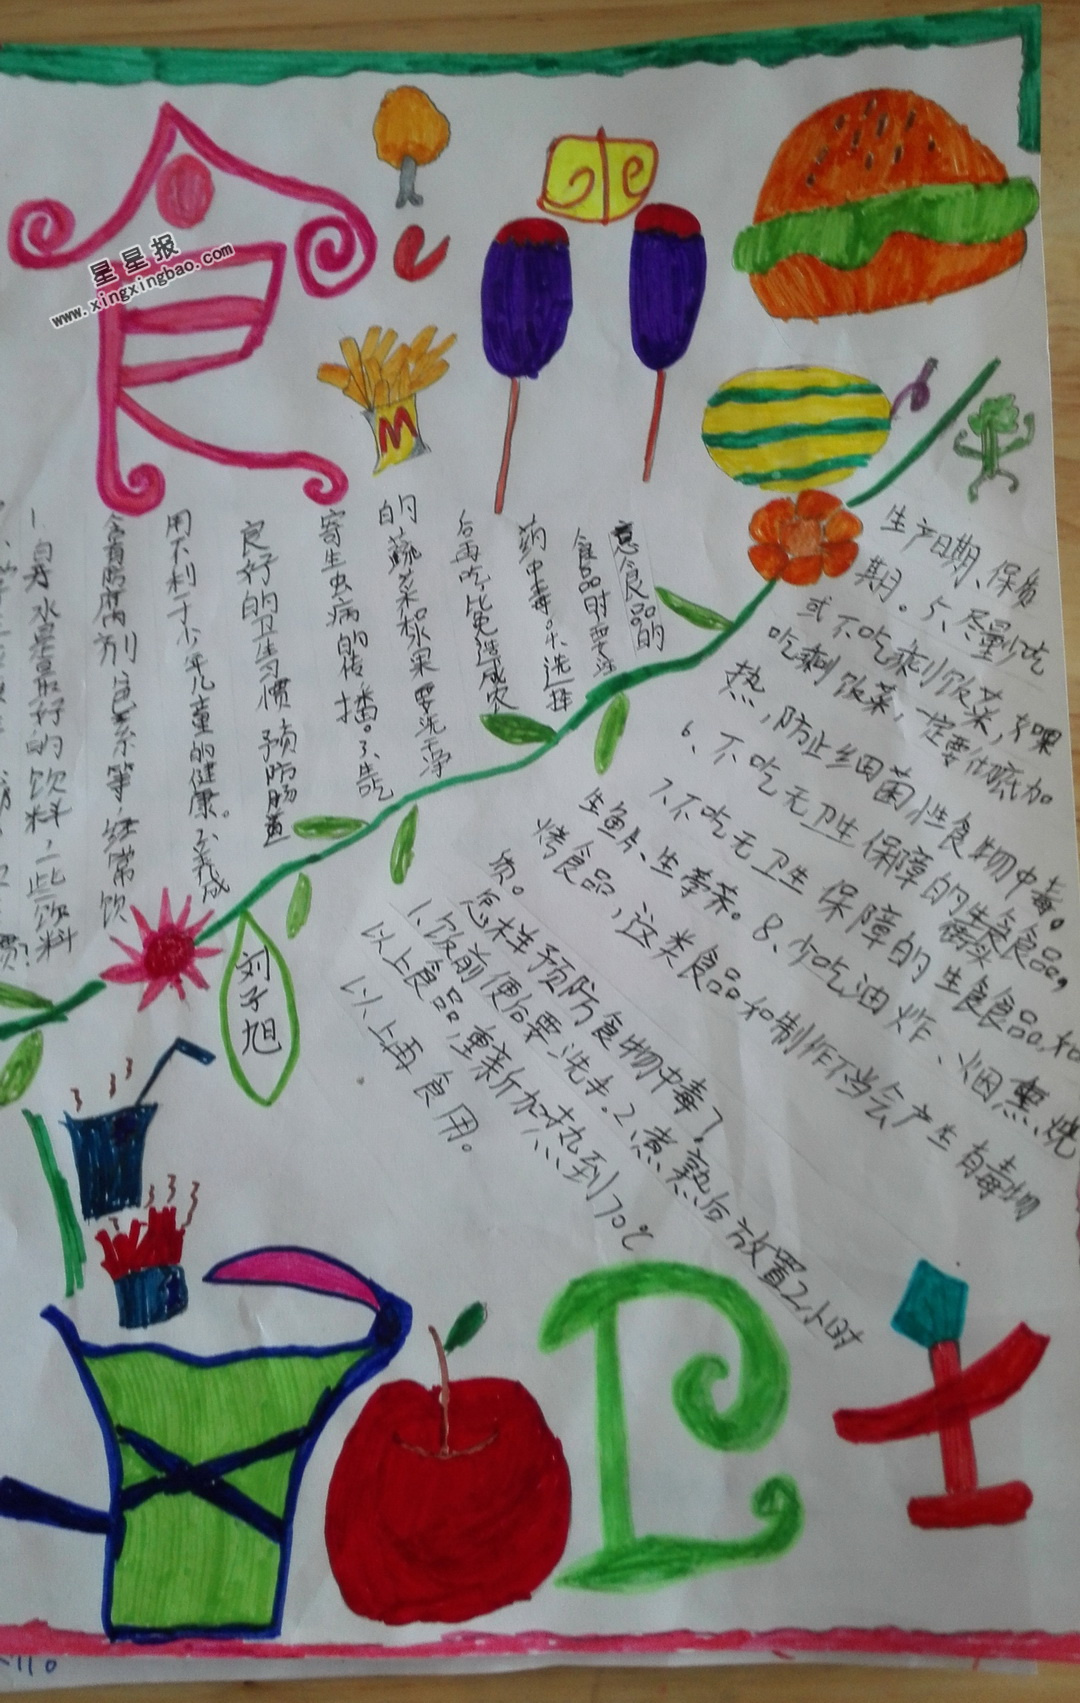 食
星星报
www.xingxingbao.com
M
1.白开水是最好的饮料,一些饮料
含有防腐剂、色素等,经常饮
用不利于少年儿童的健康。2、养成
良好的卫生习惯预防肠道
寄生虫病的传播。3、生吃
的蔬菜和水果要洗干净
后再吃,以免造成农
药中毒。4、选择
食品时要注
意食品的
生产日期、保质
期。5、尽量少吃
或不吃剩饭菜,如果
吃剩饭菜,一定要彻底加
热,防止细菌性食物中毒。
6、不吃无卫生保障的生食食品,
7、不吃无卫生保障的生食食品,如
生鱼片、生拳菜。8、少吃油炸、烟熏、烧
烤食品,这类食品如制作不当会产生有毒物
质。
怎样预防食物中毒?
1、饭前便后要洗手。2、煮熟后放置2小时
以上食品,重新加热到70℃
以上再食用。
刘子旭
卫士